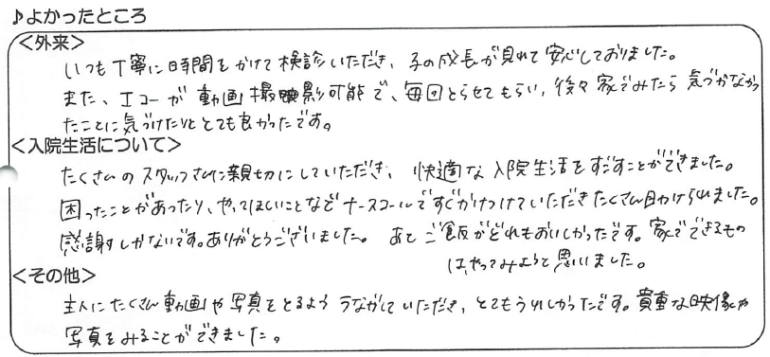 ♪よかったところ
<外来>
いつも丁寧に時間をかけて検診いただき、子の成長が見れて安心しておりました。
また、エコーが動画撮影可能で、毎回とらせてもらい、後々家でみたら気づかなかっ
たことに気づけたりととても良かったです。
<入院生活について>
たくさんのスタッフさんに親切にしていただき、快適な入院生活をすごすことができました。
困ったことがあったり、やってほしいことなどナースコールですぐかけつけていただきたくさん助けられました。
感謝しかないです。ありがとうございました。あとご飯がどれもおいしかったです。家でできるもの
は、やってみようと思いました。
<その他>
主人にたくさん動画や写真をとるよううながしていただき、とてもうれしかったです。貴重な映像や
写真をみることができました。